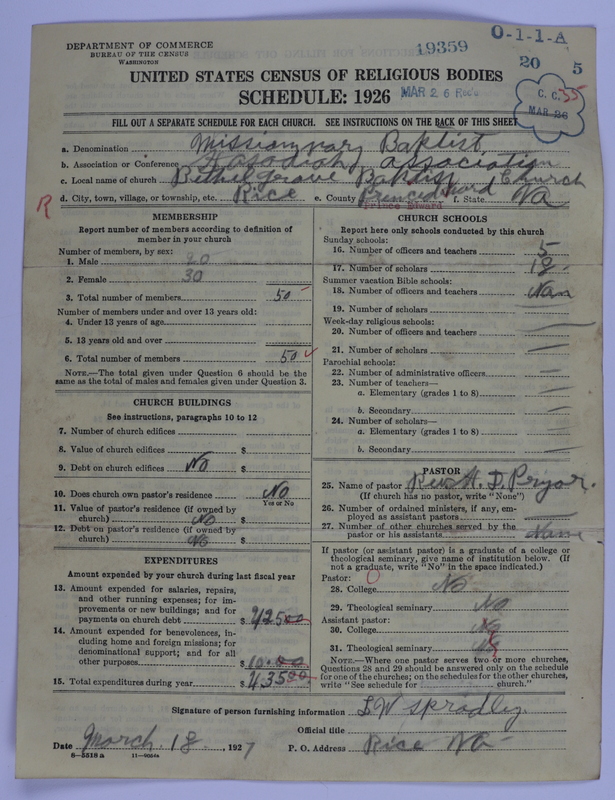 DEPARTMENT OF COMMERCE
BUREAU OF THE CENSUS
WASHINGTON
19359
O-1-1-A
20 5
UNITED STATES CENSUS OF RELIGIOUS BODIES
SCHEDULE: 1926
MAR 26 Rec'd
C. C. 35
MAR 26
FILL OUT A SEPARATE SCHEDULE FOR EACH CHURCH. SEE INSTRUCTIONS ON THE BACK OF THIS SHEET
a. Denomination Missionary Baptist
b. Association or Conference association
c. Local name of church Bethel grove Baptist Church
d. City, town, village, or township, etc. Rice e. County Prince Edward f. State Va
Prince Edward
R
MEMBERSHIP
Report number of members according to definition of
member in your church
Number of members, by sex:
1. Male 20
2. Female 30
3. Total number of members 50
Number of members under and over 13 years old:
4. Under 13 years of age
5. 13 years old and over
6. Total number of members 50
NOTE.—The total given under Question 6 should be
the same as the total of males and females given under Question 3.
CHURCH BUILDINGS
See instructions, paragraphs 10 to 12
7. Number of church edifices
8. Value of church edifices $
9. Debt on church edifices No $
10. Does church own pastor's residence No
Yes or No
11. Value of pastor's residence (if owned by
church) No $
12. Debt on pastor's residence (if owned by
church) No $
EXPENDITURES
Amount expended by your church during last fiscal year
13. Amount expended for salaries, repairs,
and other running expenses; for im-
provements or new buildings; and for
payments on church debt $ 42500
14. Amount expended for benevolences, in-
cluding home and foreign missions; for
denominational support; and for all
other purposes $ 10.00
15. Total expenditures during year $ 43500
CHURCH SCHOOLS
Report here only schools conducted by this church
Sunday schools:
16. Number of officers and teachers 5
17. Number of scholars 18
Summer vacation Bible schools:
18. Number of officers and teachers
19. Number of scholars
Week-day religious schools:
20. Number of officers and teachers
21. Number of scholars
Parochial schools:
22. Number of administrative officers
23. Number of teachers—
a. Elementary (grades 1 to 8)
b. Secondary
24. Number of scholars—
a. Elementary (grades 1 to 8)
b. Secondary
PASTOR
25. Name of pastor Rev. D. Pryor.
(If church has no pastor, write "None")
26. Number of ordained ministers, if any, em-
ployed as assistant pastors
27. Number of other churches served by the
pastor or his assistants
If pastor (or assistant pastor) is a graduate of a college or
theological seminary, give name of institution below. (If
not a graduate, write "No" in the space indicated.)
Pastor:
28. College No
29. Theological seminary No
Assistant pastor:
30. College No
31. Theological seminary
NOTE.—Where one pastor serves two or more churches,
Questions 28 and 29 should be answered only on the schedule
for one of the churches; on the schedules for the other churches,
write "See schedule for church."
Signature of person furnishing information Spradley
Official title
Date March 18, 1927 P. O. Address Rice Va
8-5518 a